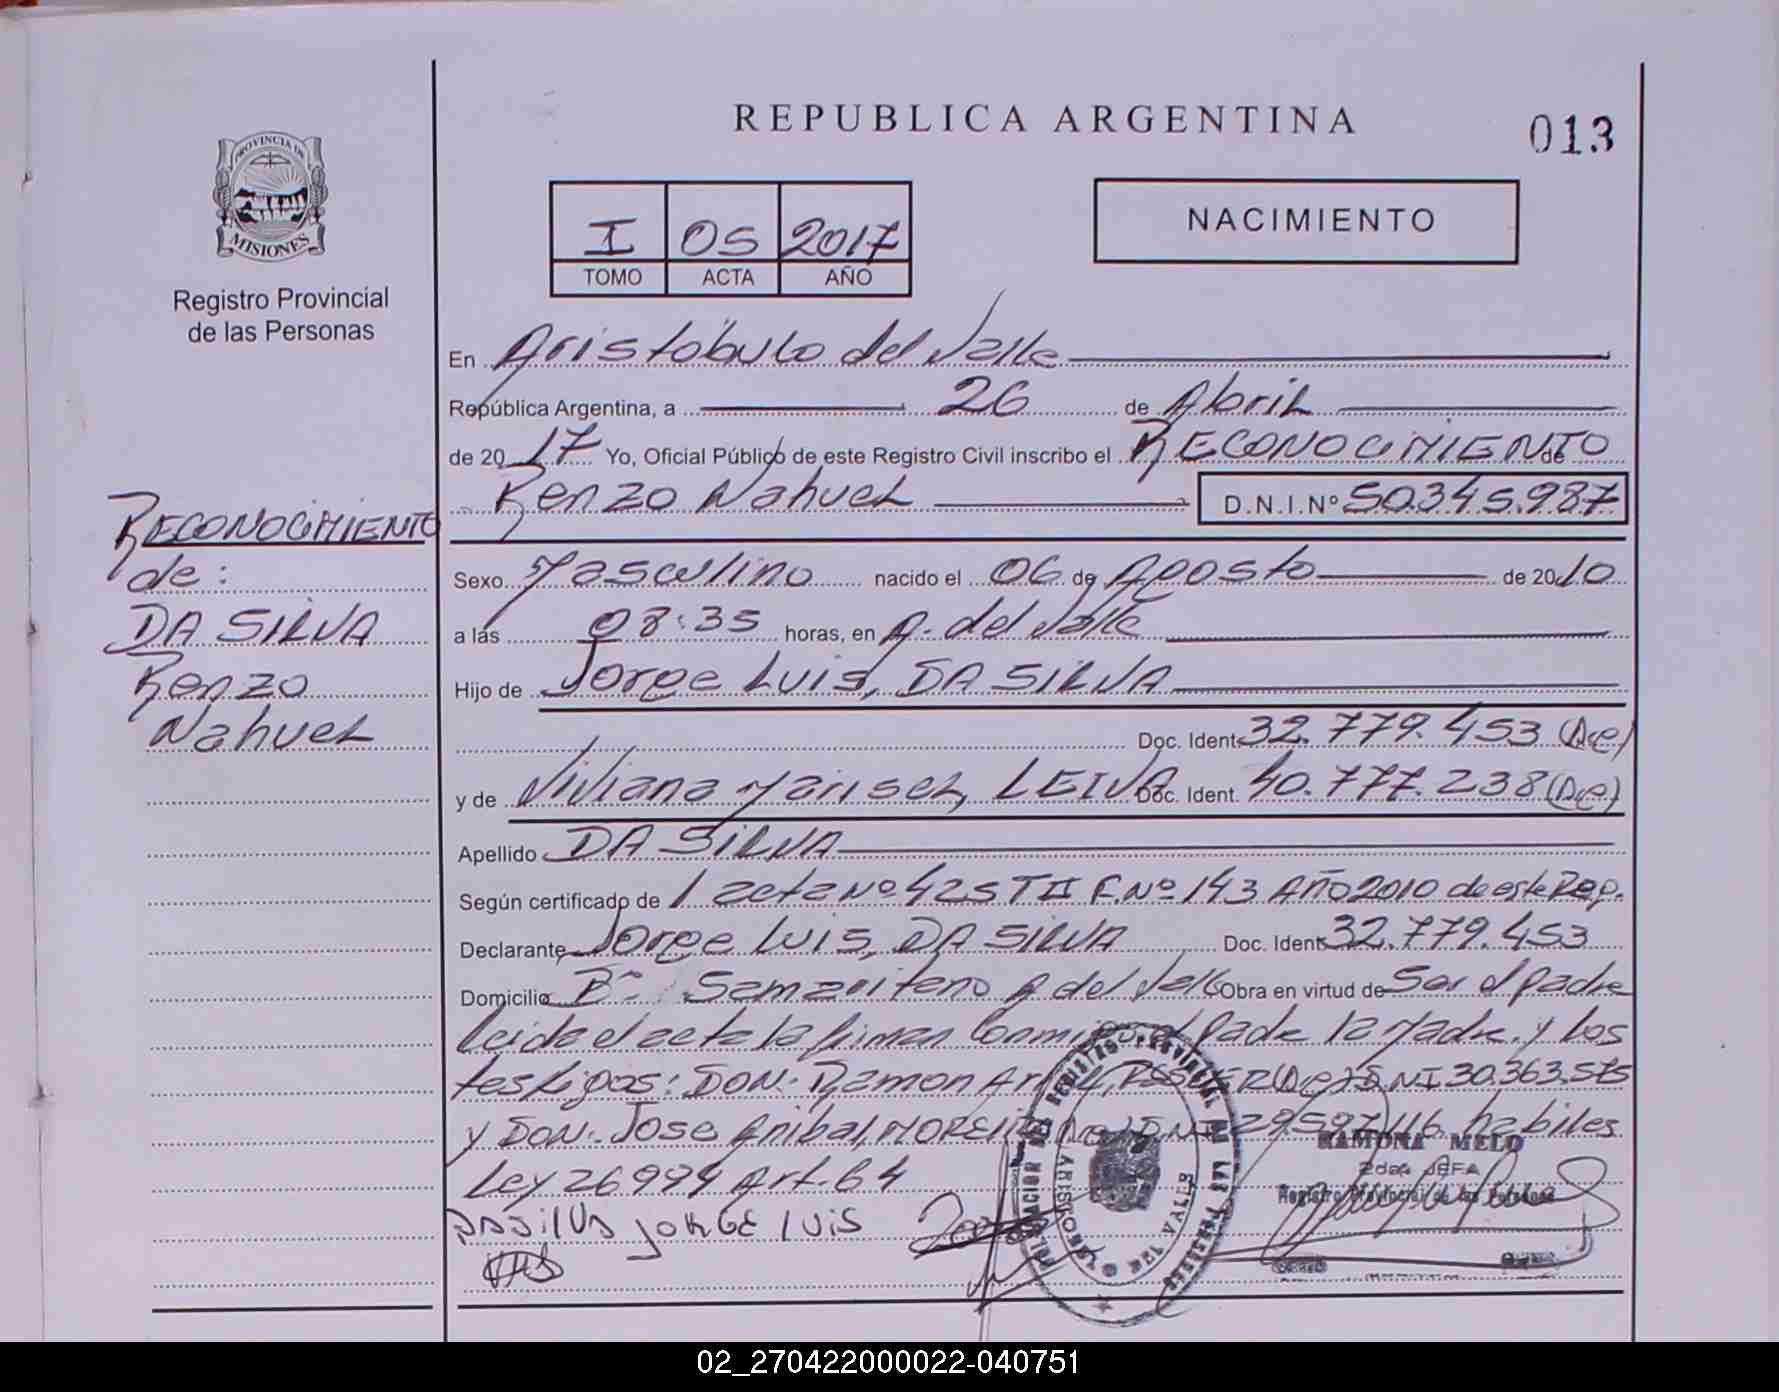 REPUBLICA ARGENTINA
013
PROVINCIA DE
MISIONES
Registro Provincial
de las Personas
I 05 2017
TOMO ACTA AÑO
NACIMIENTO
En Aristóbulo del Valle
República Argentina, a 26 de Abril
de 2017 Yo, Oficial Público de este Registro Civil inscribo el RECONOCIMIENTO de
Renzo Nahuel D.N.I.Nº 50.345.987
RECONOCIMIENTO
de:
DA SILVA
Renzo
Nahuel
Sexo Masculino nacido el 06 de Agosto de 2010
a las 08:35 horas, en A. del Valle
Hijo de Jorge Luis, DA SILVA
Doc. Ident. 32.779.453 (Dce)
y de Viviana Marisel, LEIVA Doc. Ident. 40.777.238 (Dce)
Apellido DA SILVA
Según certificado de / acta Nº 425 T II F.Nº 143 Año 2010 de este Rep.
Declarante Jorge Luis, DA SILVA Doc. Ident. 32.779.453
Domicilio Bº Samaritano A del Valle Obra en virtud de Ser el padre
Leida el acta la firman Conmigo el padre la Madre y los
testigos: DON. Ramon (De) D.NI 30.363.575
y DON. Jose Anibal, D.NI 29.597.116 habiles
Ley 26994 Art. 64
DA SILVA JORGE LUIS
RAMONA MELO
2da. JEFA
Registro Provincial de las Personas
ARISTOBULO DEL VALLE
02_270422000022-040751